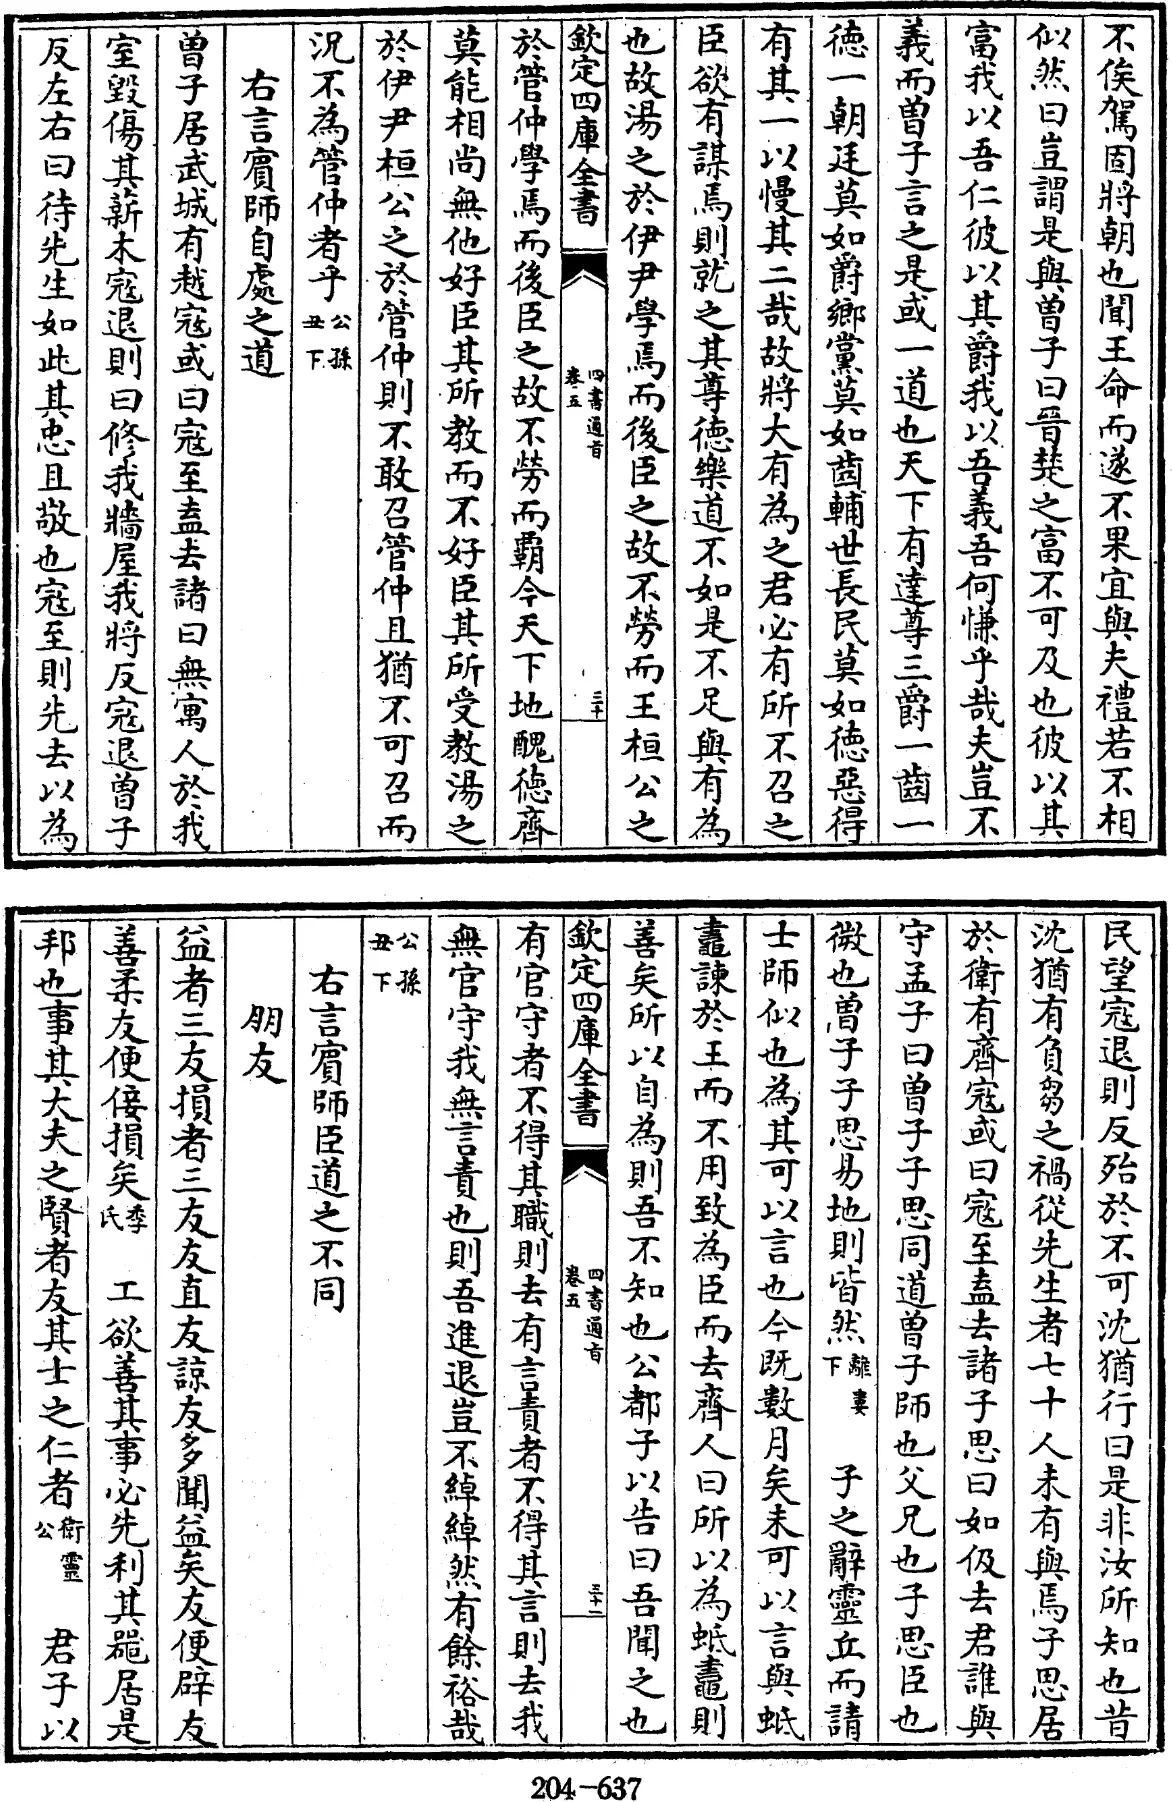 不俟駕固將朝也聞王命而遂不果宜與夫禮若不相
似然曰豈謂是與曽子曰晉楚之富不可及也彼以其
富我以吾仁彼以其爵我以吾義吾何慊乎哉夫豈不
義而曽子言之是或一道也天下有達尊三爵一齒一
徳一朝廷莫如爵鄉黨莫如齒輔世長民莫如徳惡得
有其一以慢其二哉故將大有為之君必有所不召之
臣欲有謀焉則就之其尊徳樂道不如是不足與有為
也故湯之於伊尹學焉而後臣之故不勞而王桓公之
欽定四庫全書
四書通旨
卷五
三十
於管仲學焉而後臣之故不勞而霸今天下地醜徳齊
莫能相尚無他好臣其所教而不好臣其所受教湯之
於伊尹桓公之於管仲則不敢召管仲且猶不可召而
況不為管仲者乎公孫丑下
右言賓師自處之道
曽子居武城有越寇或曰寇至盍去諸曰無寓人於我
室毀傷其薪木寇退則曰修我牆屋我將反寇退曽子
反左右曰待先生如此其忠且敬也寇至則先去以為
民望寇退則反殆於不可沈猶行曰是非汝所知也昔
沈猶有負芻之禍從先生者七十人未有與焉子思居
於衛有齊寇或曰寇至盍去諸子思曰如伋去君誰與
守孟子曰曽子子思同道曽子師也父兄也子思臣也
微也曽子子思易地則皆然離婁下 子之辭靈丘而請
士師似也為其可以言也今既數月矣未可以言與蚳
鼃諫於王而不用致為臣而去齊人曰所以為蚳鼃則
善矣所以自為則吾不知也公都子以告曰吾聞之也
欽定四庫全書
四書通旨
卷五
三十一
有官守者不得其職則去有言責者不得其言則去我
無官守我無言責也則吾進退豈不綽綽然有餘裕哉
公孫丑下
右言賓師臣道之不同
朋友
益者三友損者三友友直友諒友多聞益矣友便辟友
善柔友便佞損矣季氏 工欲善其事必先利其器居是
邦也事其大夫之賢者友其士之仁者衛靈公 君子以
204-637